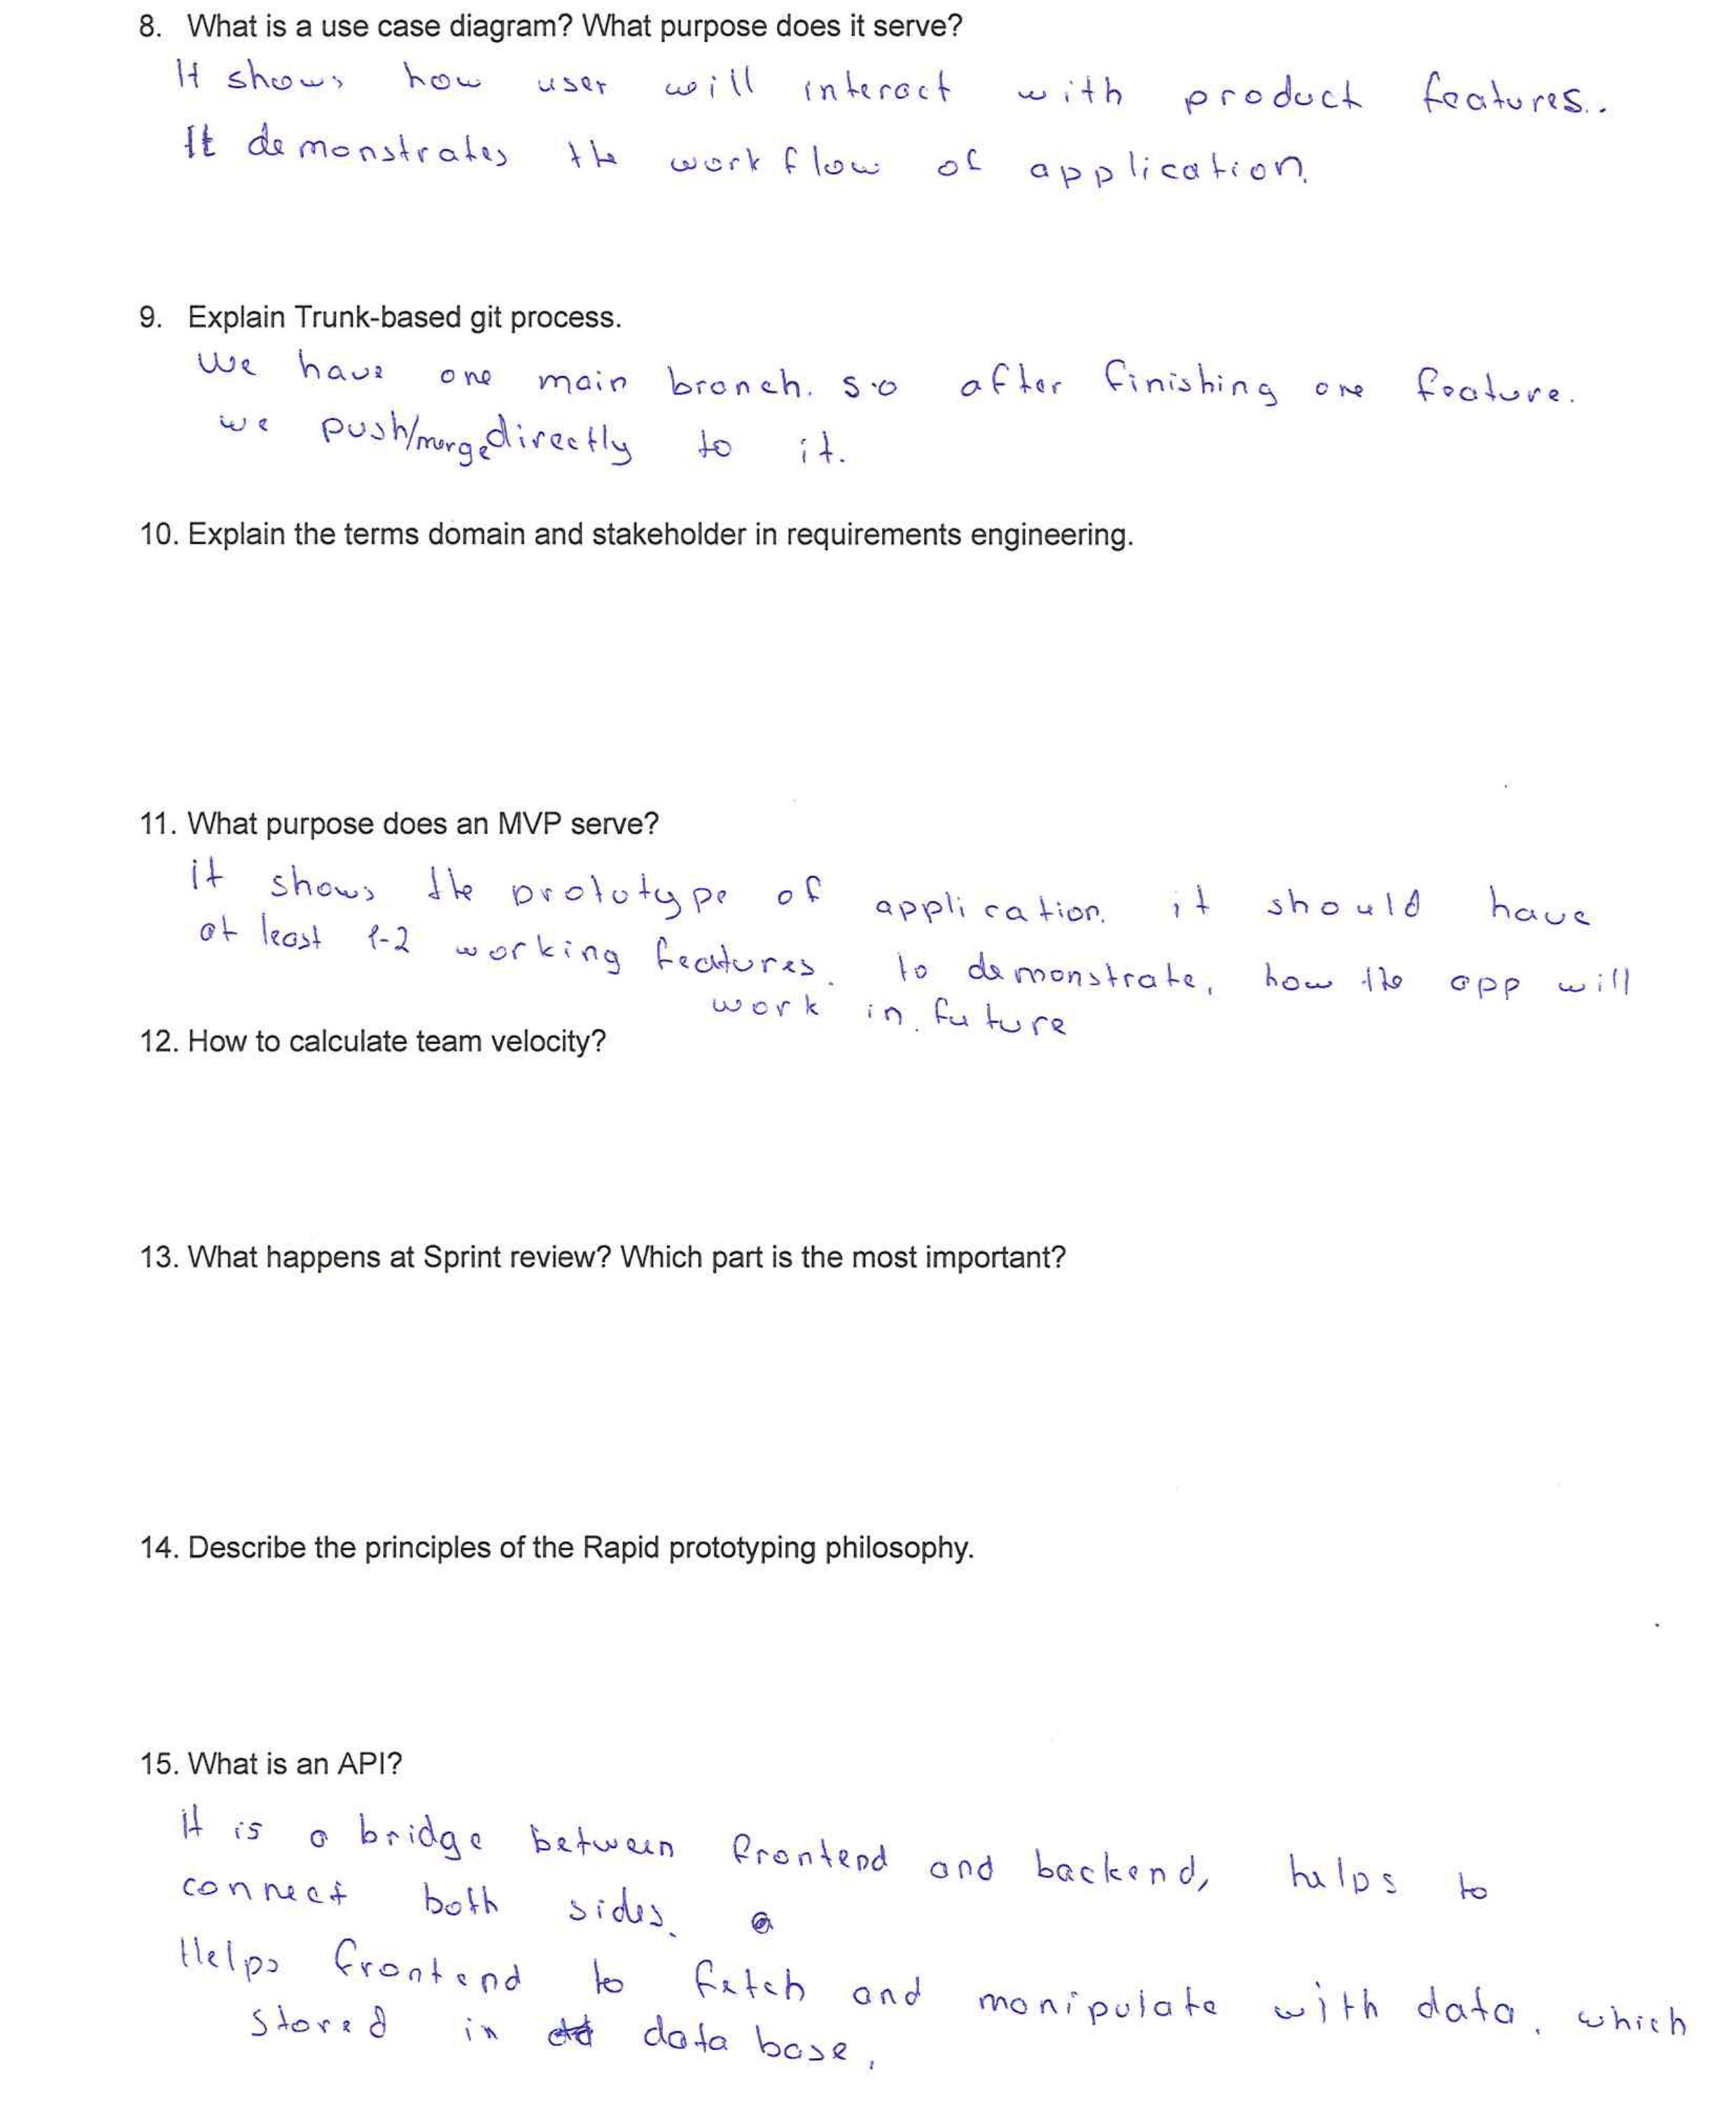 8. What is a use case diagram? What purpose does it serve?
It shows how user will interact with product features.
It demonstrates the workflow of application.
9. Explain Trunk-based git process.
We have one main branch. so after finishing one feature.
we push/merge directly to it.
10. Explain the terms domain and stakeholder in requirements engineering.
11. What purpose does an MVP serve?
it shows the prototype of application. it should have
at least 1-2 working features. to demonstrate, how the app will
work in future
12. How to calculate team velocity?
13. What happens at Sprint review? Which part is the most important?
14. Describe the principles of the Rapid prototyping philosophy.
15. What is an API?
it is a bridge between frontend and backend, helps to
connect both sides.
Helps frontend to fetch and manipulate with data, which
stored in data base.